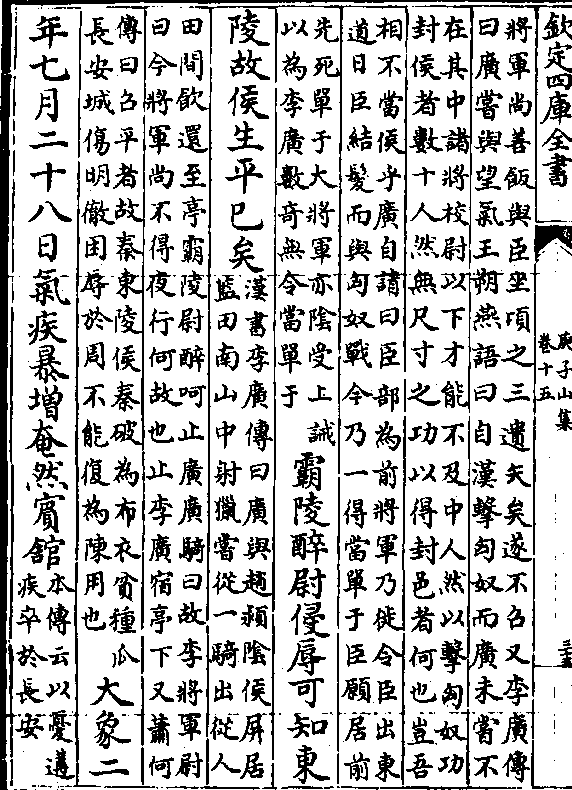 欽定四庫全書
庾子山集
卷十五
將軍尚善飯與臣坐項之三遺矢矣遂不召又李廣傳
曰廣嘗與望氣王朔燕語曰自漢擊匈奴而廣未嘗不
在其中諸將校尉以下才能不及中人然以擊匈奴功
封侯者數十人然無尺寸之功以得封邑者何也豈吾
相不當侯乎廣自請曰臣部為前將軍乃徙令臣出東
道日臣結髮而與匈奴戰今乃一得當單于臣願居前
先死單于大將軍亦陰受上誡
以為李廣數奇無令當單于
霸陵醉尉侵辱可知東
陵故侯生平已矣
漢書李廣傳曰廣與趙潁陰侯屏居
藍田南山中射獵嘗從一騎出從人
田間飲還至亭霸陵尉醉呵止廣廣騎曰故李將軍尉
曰今將軍尚不得夜行何故也止李廣宿亭下又蕭何
傳曰召平者故秦東陵侯秦破為布衣貧種瓜
長安城傷明儆困辱於周不能復為陳用也
大象二
年七月二十八日氣疾暴增奄然賓舘
本傳云以憂遘
疾卒於長安